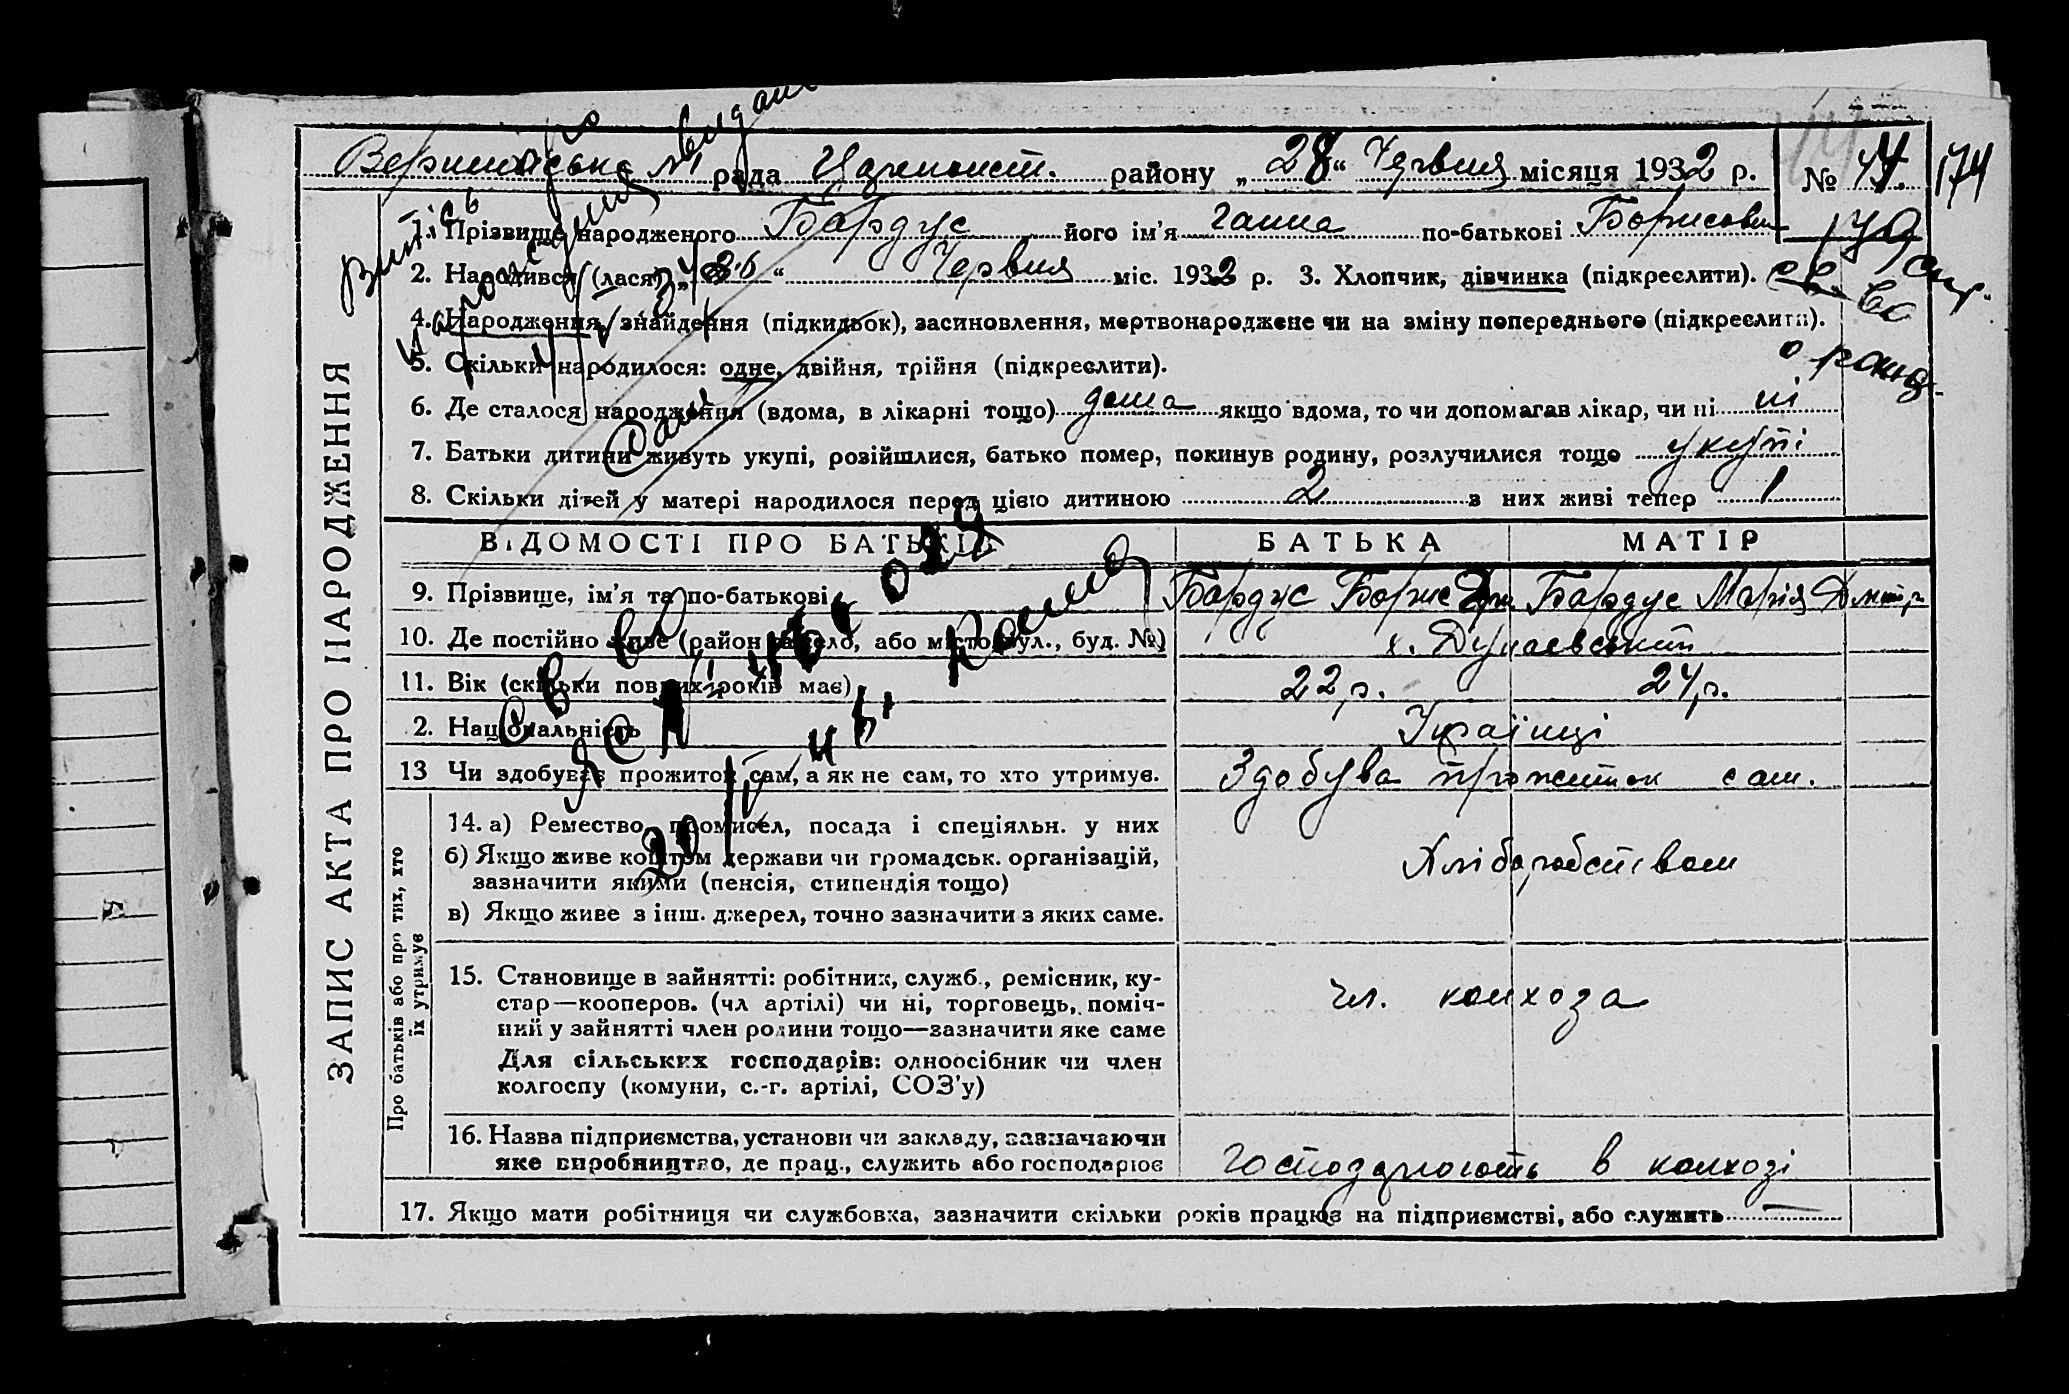 рада Царичанськ. району „28“ Червня місяця 1932 р. № 174
1. Прізвище народженого Бардус його ім’я Ганна по-батькові Борисовн
2. Народився (лася) „26“ Червня міс. 1932 р. 3. Хлопчик, дівчинка (підкреслити).
4. Народження, знайдення (підкидьок), засиновлення, мертвонароджене чи на зміну попереднього (підкреслити).
5. Скільки народилося: одне, двійня, трійня (підкреслити).
6. Де сталося народження (вдома, в лікарні тощо) дома якщо вдома, то чи допомагав лікар, чи ні ні
7. Батьки дитини живуть укупі, розійшлися, батько помер, покинув родину, розлучилися тощо укупі
8. Скільки дітей у матері народилося перед цією дитиною 2 з них живі тепер 1
Витяг
ЗАПИС АКТА ПРО НАРОДЖЕННЯ
ВІДОМОСТІ ПРО БАТЬКІВ БАТЬКА МАТІР
9. Прізвище, ім’я та по-батькові Бардус Борис Бардус Марія Дмитр
10. Де постійно живе (район та село, або місто, вул., буд. №) х. Дунаевський
11. Вік (скільки повних років має) 22 р. 24 р.
2. Національність Українці
13 Чи здобуває прожиток сам, а як не сам, то хто утримує. Здобува прожиток сам.
Про батьків або про тих, хто
їх утримує
14. а) Ремество, промисел, посада і спеціяльн. у них
б) Якщо живе коштом держави чи громадськ. організацій,
зазначити якими (пенсія, стипендія тощо)
Хліборобством
в) Якщо живе з інш. джерел, точно зазначити з яких саме.
15. Становище в зайнятті: робітник, служб., ремісник, ку-
стар—кооперов. (чл артілі) чи ні, торговець, поміч-
ний у зайнятті член родини тощо—зазначити яке саме
чл. колхоза
Для сільських господарів: одноосібник чи член
колгоспу (комуни, с.-г. артілі, СОЗ’у)
16. Назва підприємства, установи чи закладу, зазначаючи
яке виробництво, де прац., служить або господарює
господарюють в колхозі
17. Якщо мати робітниця чи службовка, зазначити скільки років працює на підприємстві, або служить —